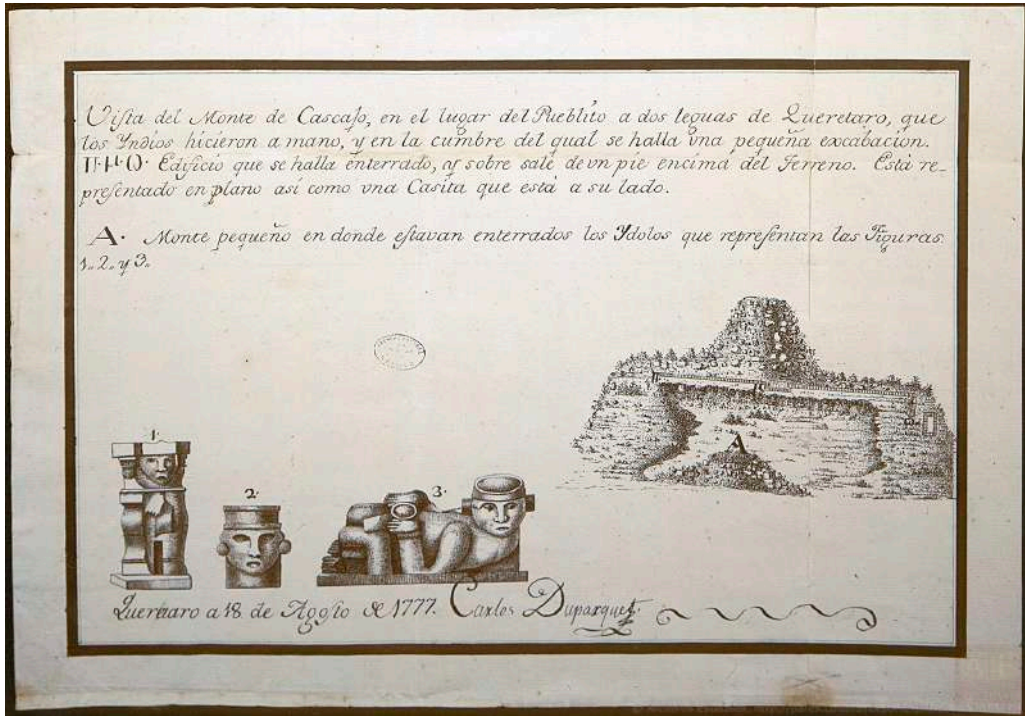 Vista del Monte de Cascajo, en el lugar del Pueblito a dos leguas de Queretaro, que
los Yndios hicieron a mano, y en la cumbre del qual se halla vna pequeña excabacion.
Edificio que se halla enterrado, y sobre sale de vn pie encima del Terreno. Está re-
presentado en plano así como vna Casita que está a su lado.
A. Monte pequeño en donde estavan enterrados los Ydolos que representan las Figuras
1. 2. y 3.
A
1.
2.
3.
Queretaro a 18 de Agosto de 1777. Carlos Duparquet